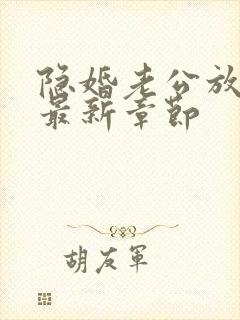 隐婚老公放
最新章節
胡友軍